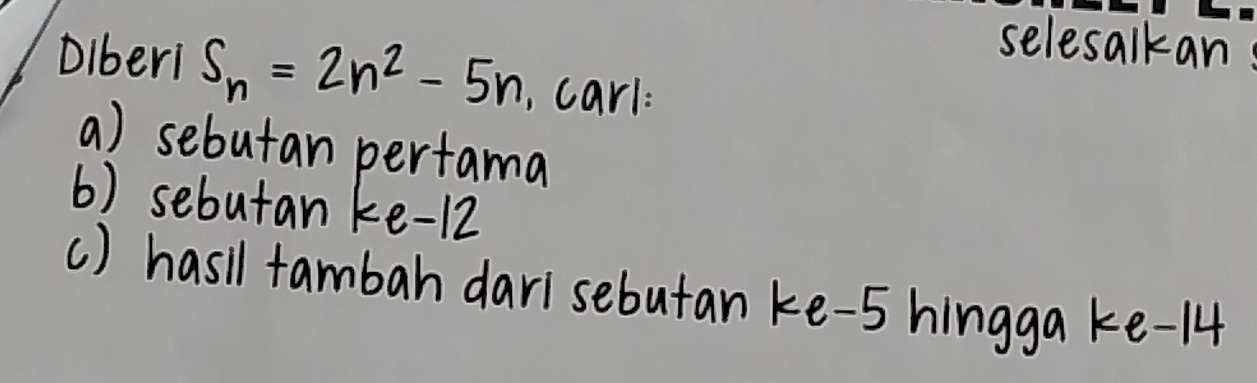 selesaikan
Diberi Sn = 2n² - 5n, cari:
a) sebutan pertama
b) sebutan ke-12
c) hasil tambah dari sebutan ke-5 hingga ke-14